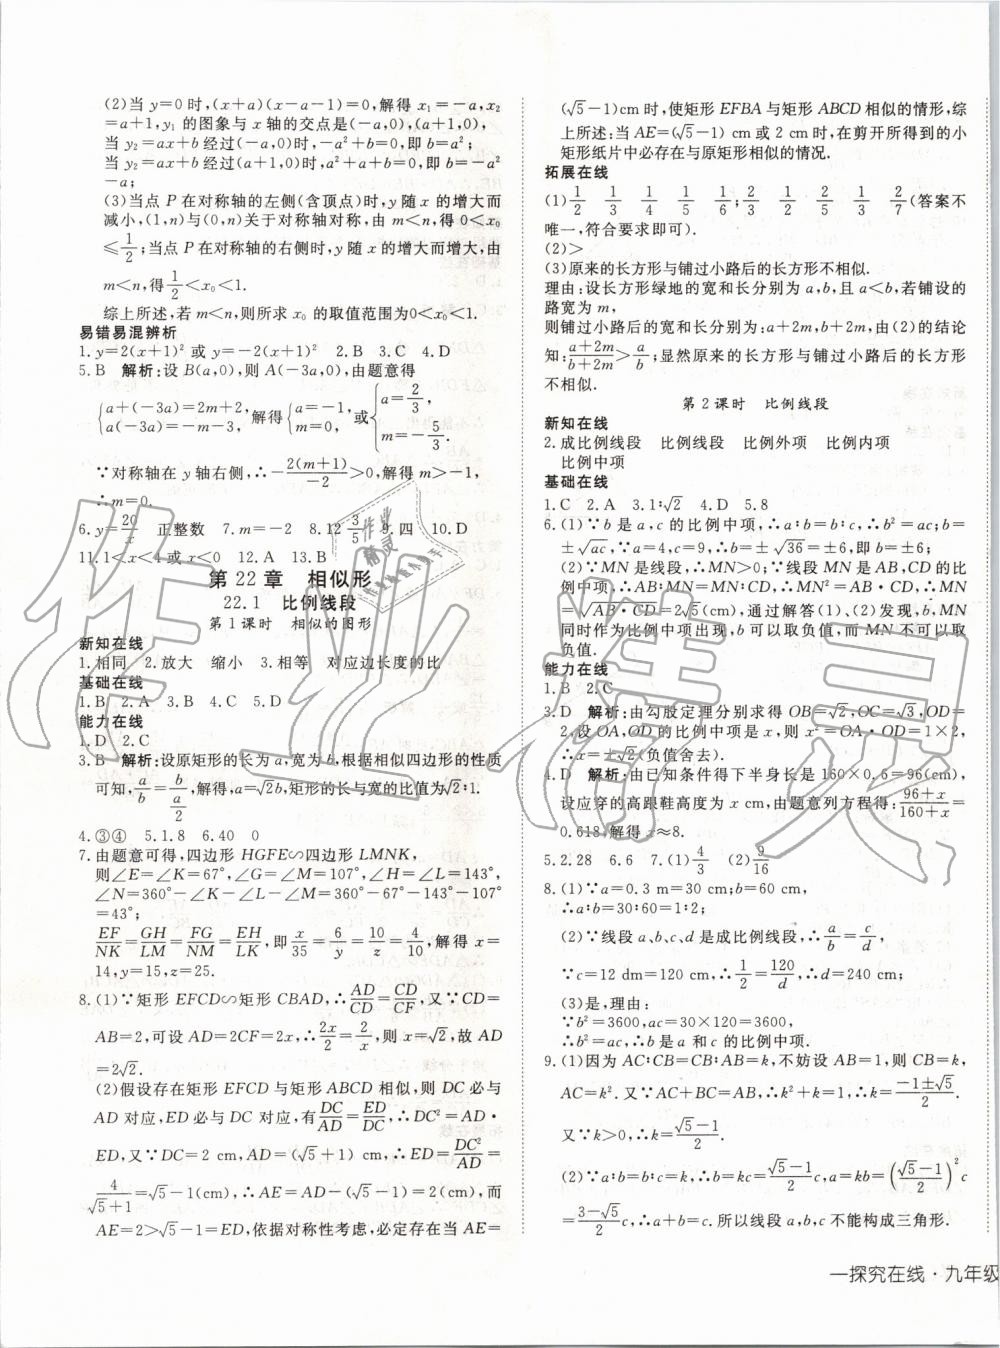 (2)当 y=0时,(x+a)(x-a-1)=0,解得 x₁=-a,x₂
=a+1,y₁ 的图象与 x 轴的交点是(-a,0),(a+1,0),
当 y₂=ax+b 经过(-a,0)时,-a²+b=0,即 b=a²;
当 y₂=ax+b 经过(a+1,0)时,a²+a+b=0,即 b=-a²
-a;
(3)当点 P 在对称轴的左侧(含顶点)时,y 随 x 的增大而
减小,(1,n)与(0,n)关于对称轴对称,由 m<n,得 0<x₀
≤1/2;当点 P 在对称轴的右侧时,y 随 x 的增大而增大,由
m<n,得1/2<x₀<1.
综上所述,若 m<n,则所求 x₀ 的取值范围为0<x₀<1.
易错易混辨析
1.y=2(x+1)² 或 y=-2(x+1)² 2.B 3.C 4.D
5.B 解析:设 B(a,0),则 A(-3a,0),由题意得
{a+(-3a)=2m+2, a(-3a)=-m-3, 解得{a=-1, m=0, 或{a=2/3, m=-5/3.
∵对称轴在 y 轴右侧,∴-2(m+1)/-2>0,解得 m>-1,
∴m=0.
6.y=20/x 正整数 7.m=-2 8.12 3/5 9.四 10.D
11.1<x<4 或 x<0 12.A 13.B
第 22 章 相似形
22.1 比例线段
第 1 课时 相似的图形
新知在线
1.相同 2.放大 缩小 3.相等 对应边长度的比
基础在线
1.B 2.A 3.B 4.C 5.D
能力在线
1.D 2.C
3.B 解析:设原矩形的长为 a,宽为 b,根据相似四边形的性质
可知,a/b=b/(a/2),解得,a=√2b,矩形的长与宽的比值为√2∶1.
4.③④ 5.1.8 6.40 0
7.由题意可得,四边形 HGFE∽四边形 LMNK,
则∠E=∠K=67°,∠G=∠M=107°,∠H=∠L=143°,
∠N=360°-∠K-∠M-∠L=360°-67°-143°-107°
=43°;
EF/NK=GH/LM=FG/NM=EH/LK,即x/35=6/y=10/z=4/10,解得 x=
14,y=15,z=25.
8.(1)∵矩形 EFCD∽矩形 CBAD,∴AD/CD=CD/CF,又∵CD=
AB=2,可设 AD=2CF=2x,∴2x/2=2/x,则 x=√2,故 AD
=2√2.
(2)假设存在矩形 EFCD 与矩形 ABCD 相似,则 DC 必与
AD 对应,ED 必与 DC 对应,有DC/AD=ED/DC,∴DC²=AD·
ED,又∵DC=2 cm,AD=(√5+1) cm,∴ED=DC²/AD=
4/(√5+1)=√5-1(cm),∴AE=AD-(√5-1)=2(cm),而
AE=2>√5-1=ED,依据对称性考虑,必定存在当 AE=
(√5-1)cm 时,使矩形 EFBA 与矩形 ABCD 相似的情形,综
上所述:当 AE=(√5-1) cm 或 2 cm 时,在剪开所得到的小
矩形纸片中必存在与原矩形相似的情况.
拓展在线
(1)1/2 1/3 1/4 1/5 1/6;2/3 1/2 2/5 1/3 2/7(答案不
唯一,符合要求即可).
(2)>
(3)原来的长方形与铺过小路后的长方形不相似.
理由:设长方形绿地的宽和长分别为 a,b,且 a<b,若铺设的
路宽为 m,
则铺过小路后的宽和长分别为:a+2m,b+2m,由(2)的结论
知:(a+2m)/(b+2m)>a/b;显然原来的长方形与铺过小路后的长方形
不相似.
第 2 课时 比例线段
新知在线
2.成比例线段 比例线段 比例外项 比例内项
比例中项
基础在线
1.C 2.A 3.1∶√2 4.D 5.8
6.(1)∵b 是 a,c 的比例中项,∴a∶b=b∶c,∴b²=ac;b=
±√ac,∵a=4,c=9,∴b=±√36=±6,即 b=±6;
(2)∵MN 是线段,∴MN>0;∵线段 MN 是 AB,CD 的比
例中项,∴AB∶MN=MN∶CD,∴MN²=AB·CD,∴MN
=√AB·CD=2√5(cm),通过解答(1)、(2)发现,b,MN
同时作为比例中项出现,b 可以取负值,而 MN 不可以取
负值.
能力在线
1.B 2.C
3.D 解析:由勾股定理分别求得 OB=√2,OC=√3,OD=
2,设 OA,OD 的比例中项是 x,则 x²=OA·OD=1×2,
∴x=±√2(负值舍去).
4.D 解析:由已知条件得下半身长是 160×0.6=96(cm),
设应穿的高跟鞋高度为 x cm,由题意列方程得:(96+x)/(160+x)=
0.618,解得 x≈8.
5.2.28 6.6 7.(1)4/3 (2)9/16
8.(1)∵a=0.3 m=30 cm;b=60 cm,
∴a∶b=30∶60=1∶2;
(2)∵线段 a、b、c、d 是成比例线段,∴a/b=c/d,
∵c=12 dm=120 cm,∴1/2=120/d,∴d=240 cm;
(3)是,理由:
∵b²=3600,ac=30×120=3600,
∴b²=ac,∴b 是 a 和 c 的比例中项.
9.(1)因为 AC∶CB=CB∶AB=k,不妨设 AB=1,则 CB=k,
AC=k². 又∵AC+BC=AB,∴k²+k=1,∴k=(-1±√5)/2.
又∵k>0,∴k=(√5-1)/2.
(2)∵a∶b=b∶c=k,∴b=kc=(√5-1)/2 c,a=kb=((√5-1)/2)² c
=(3-√5)/2 c,∴a+b=c. 所以线段 a,b,c 不能构成三角形.
一探究在线·九年级
作业精灵